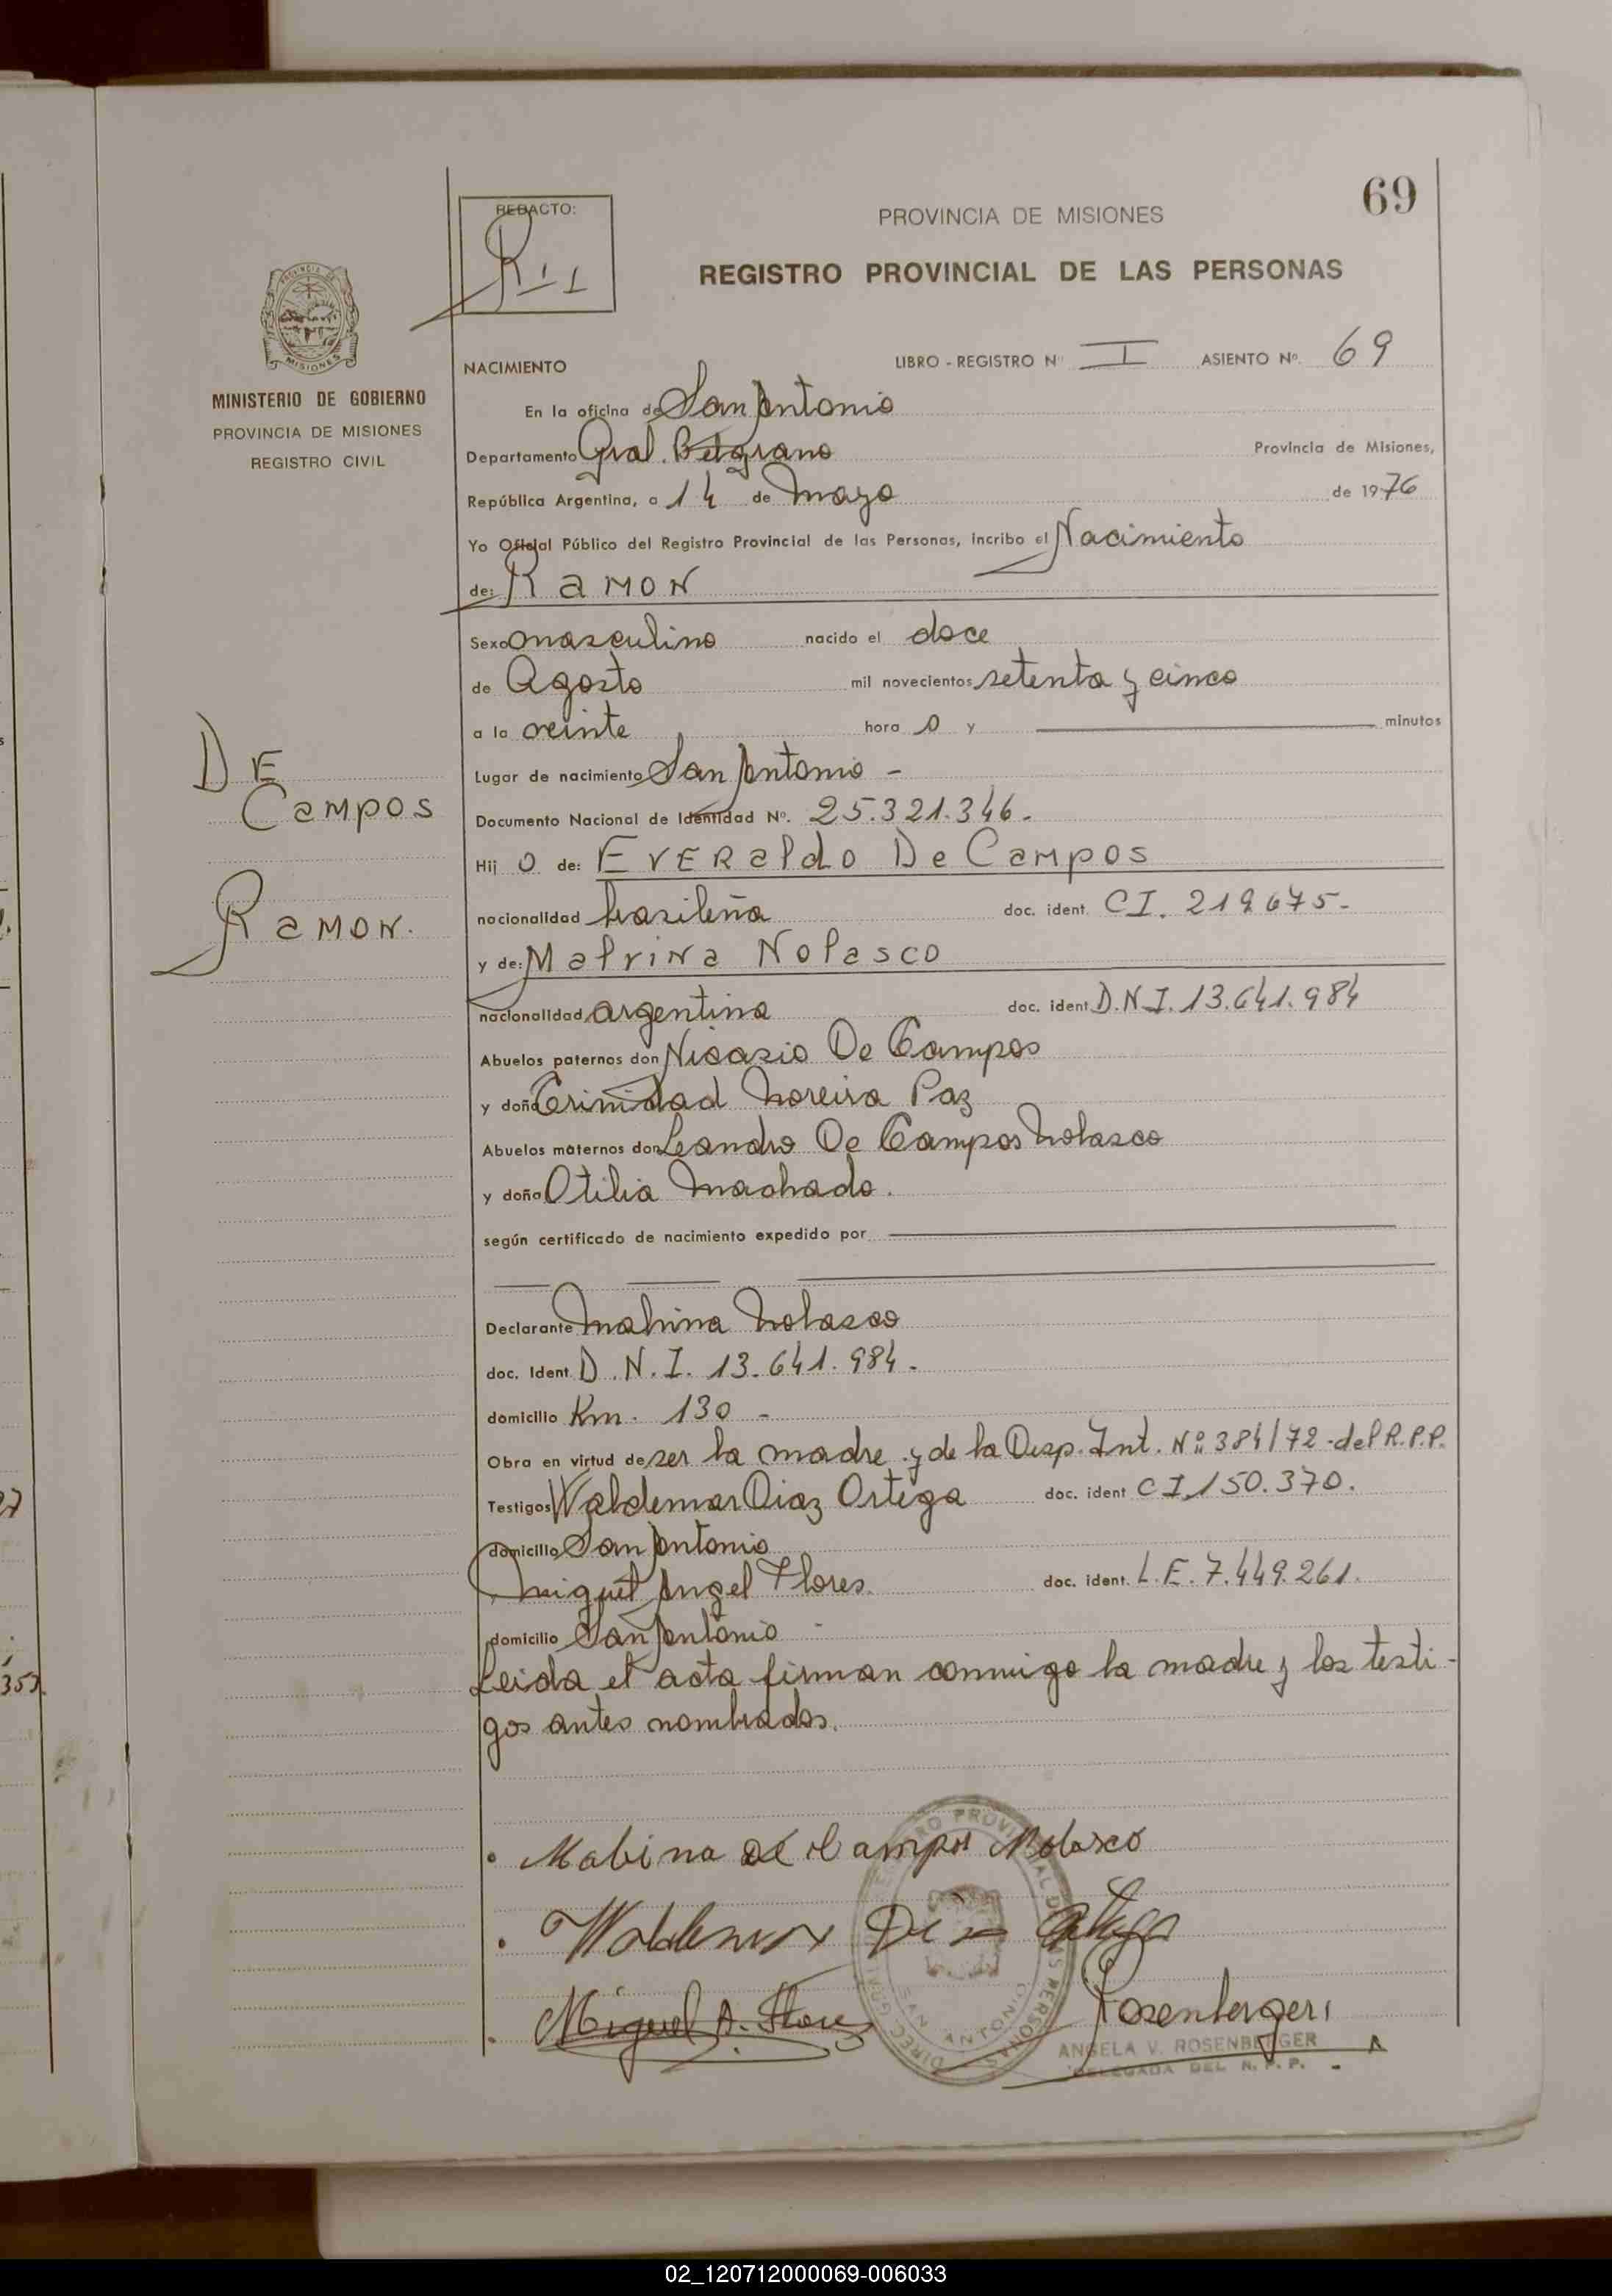 69
REDACTO:
PROVINCIA DE MISIONES
REGISTRO PROVINCIAL DE LAS PERSONAS
MISIONES
MINISTERIO DE GOBIERNO
PROVINCIA DE MISIONES
REGISTRO CIVIL
NACIMIENTO LIBRO - REGISTRO Nº I ASIENTO Nº. 69
En la oficina de San Antonio
Departamento Gral. Belgrano Provincia de Misiones,
República Argentina, a 14 de Mayo de 1976
Yo Oficial Público del Registro Provincial de las Personas, incribo el Nacimiento
de: Ramon
Sexo masculino nacido el doce
de Agosto mil novecientos setenta y cinco
a la veinte hora 0 y minutos
Lugar de nacimiento San Antonio -
Documento Nacional de Identidad Nº. 25.321.346.
Hij o de: Everaldo De Campos
nacionalidad brasileña doc. ident. CI. 219.675-
y de: Malvina Nolasco
nacionalidad argentina doc. ident. D.N.I. 13.641.984
Abuelos paternos don Nicasio De Campos
y doña Trinidad Moreira Paz
Abuelos maternos don Leandro De Campos Nolasco
y doña Otilia Machado.
según certificado de nacimiento expedido por
Declarante Malvina Nolasco
doc. Ident. D.N.I. 13.641.984.
domicilio Km. 130 -
Obra en virtud de ser la madre y de la Disp. Int. Nº 384/72 - del R.P.P.
Testigos Waldemar Diaz Ortega doc. ident CI. 150.370.
domicilio San Antonio
Miguel Angel Flores. doc. ident. L.E. 7.449.261.
domicilio San Antonio -
Leida el acta firman conmigo la madre y los testi-
gos antes nombrados.
DE
Campos
Ramon.
Malvina de Campos Nolasco
Waldemar Diaz Ortega
Miguel A. Flores
Rosenberger
SAN ANTONIO
ANGELA V. ROSENBERGER
DELEGADA DEL R. P. P.
02_120712000069-006033